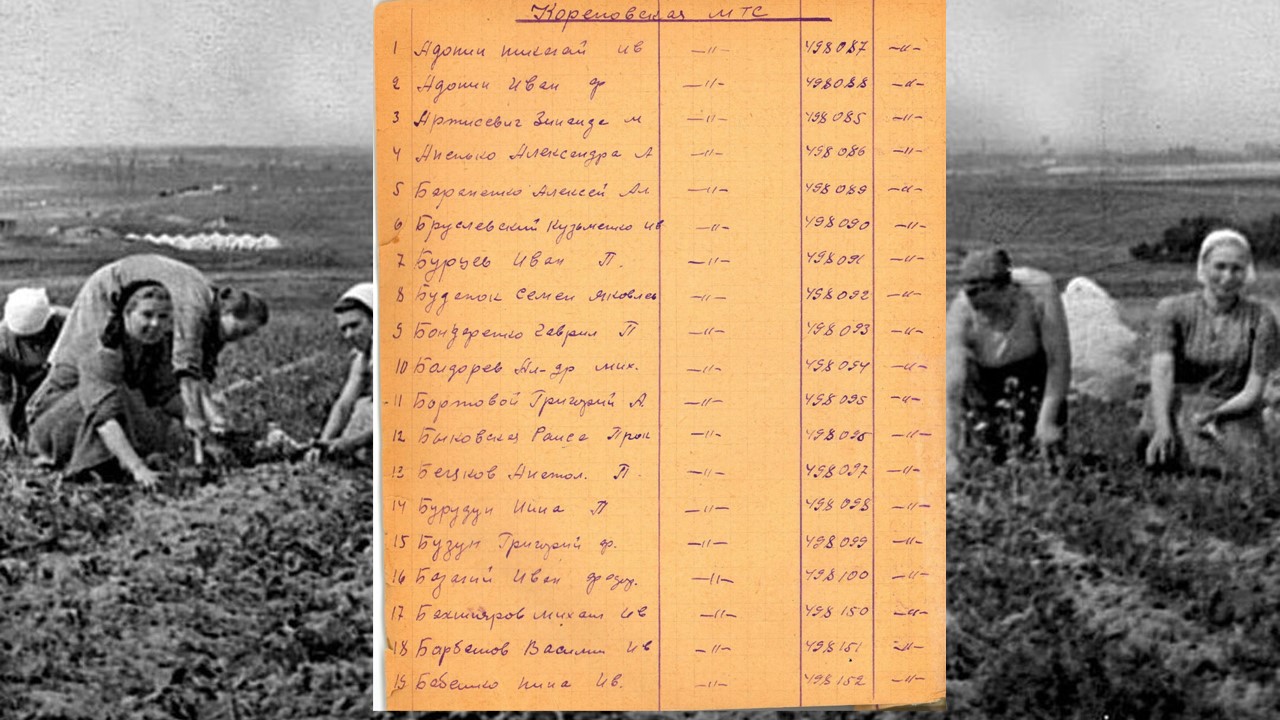 Кореновская МТС
1 Адонин Николай Ив —"— 498087 —"—
2 Адонин Иван Ф —"— 498088 —"—
3 Зинаида М —"— 498085 —"—
4 Александра А —"— 498086 —"—
5 Алексей Ал —"— 498089 —"—
6 Бруслевский Кузьменко Ив —"— 498090 —"—
7 Бурцев Иван П. —"— 498091 —"—
8 Буденок Семен Яковлев —"— 498092 —"—
9 Бондаренко Гаврил П —"— 498093 —"—
10 Ал-др Мих. —"— 498094 —"—
11 Бортовой Григорий А. —"— 498095 —"—
12 Быковская Раиса Прок —"— 498096 —"—
13 Анатол. П. —"— 498097 —"—
14 Бурудун Нина П —"— 498098 —"—
15 Бузун Григорий Ф. —"— 498099 —"—
16 Иван —"— 498100 —"—
17 Михаил Ив —"— 498150 —"—
18 Барбашов Василий Ив —"— 498151 —"—
19 Бабенко Нина Ив. —"— 498152 —"—